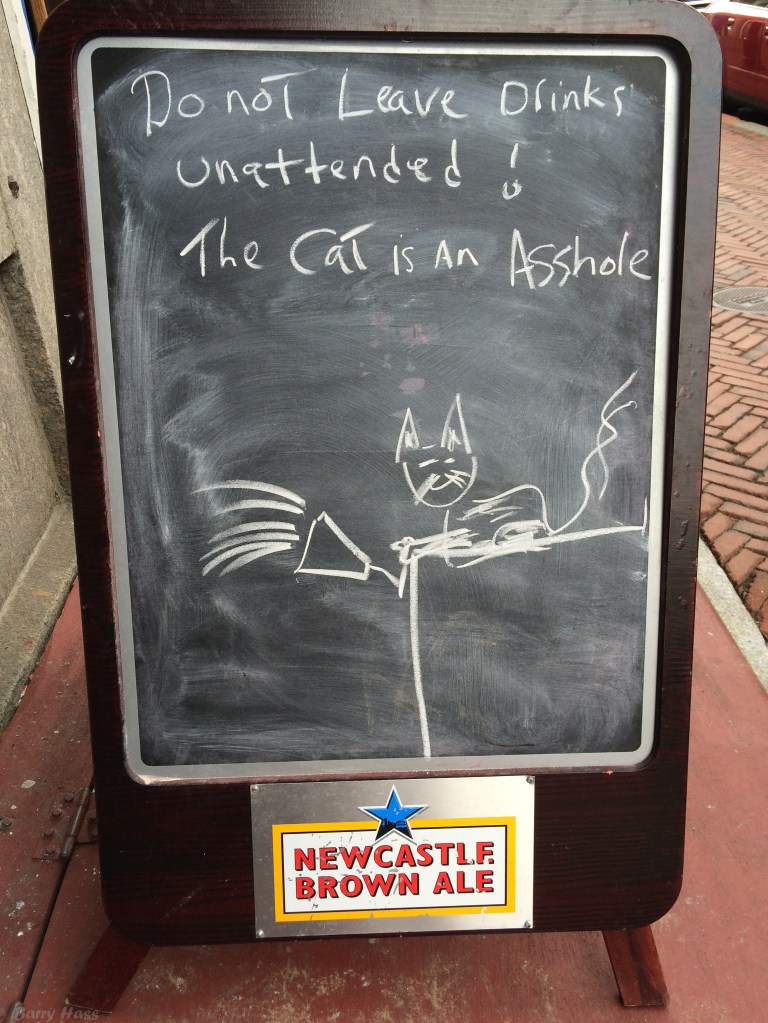 Do noT Leave Drinks
unattended !
The CaT is An Asshole
NEWCASTLE
BROWN ALE
Barry Hass